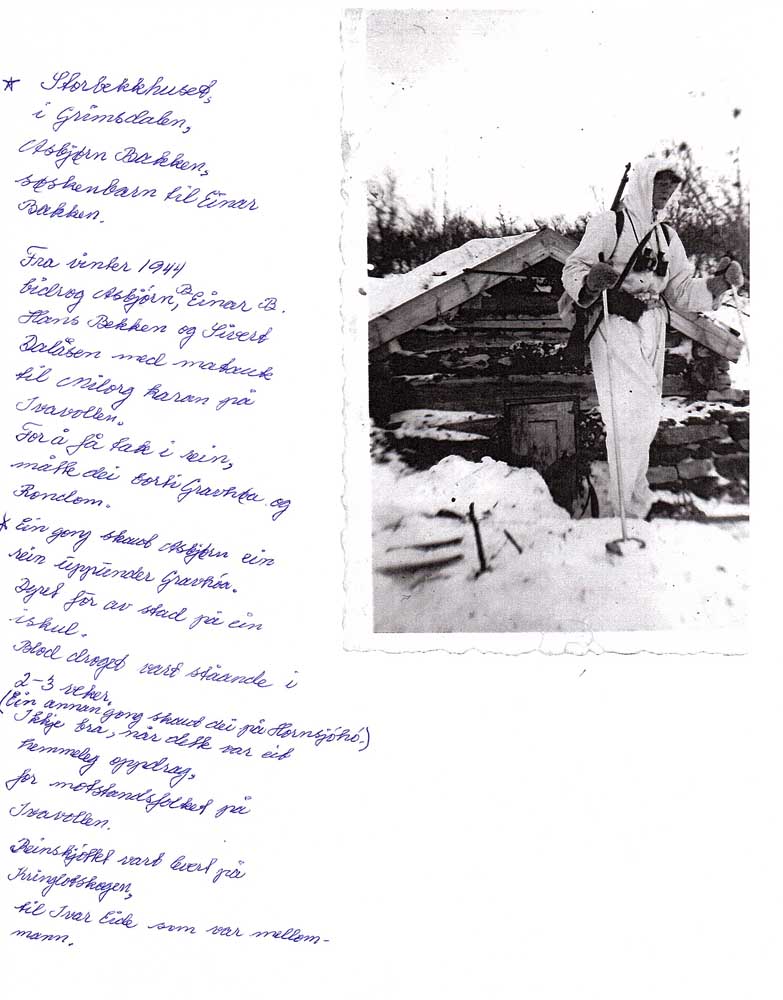 * Storbekkhuset,
i Grimsdalen,
Asbjørn Bakken,
søskenbarn til Einar
Bakken.
Fra vinter 1944
bidrog Asbjörn, B Einar B.
Hans Bekken og Sivert
Dalåsen med matauk
til Milorg karan på
Ivavollen.
For å få tak i rein,
måtte dei borti Gravhøa og
Rondom.
* Ein gong skaut Asbjørn ein
rein uppunder Gravhøa.
Dyret för av stad på ein
iskul.
Blod droget vart ståande i
2-3 veker.
(Ein annan gong skaut dei på Hornsjöhö.)
Ikkje bra, når dette var eit
hemmeleg oppdrag,
for motstandsfolket på
Ivavollen.
Reinskjöttet vart levert på
Kringlotskogen,
til Ivar Eide som var mellom-
mann.